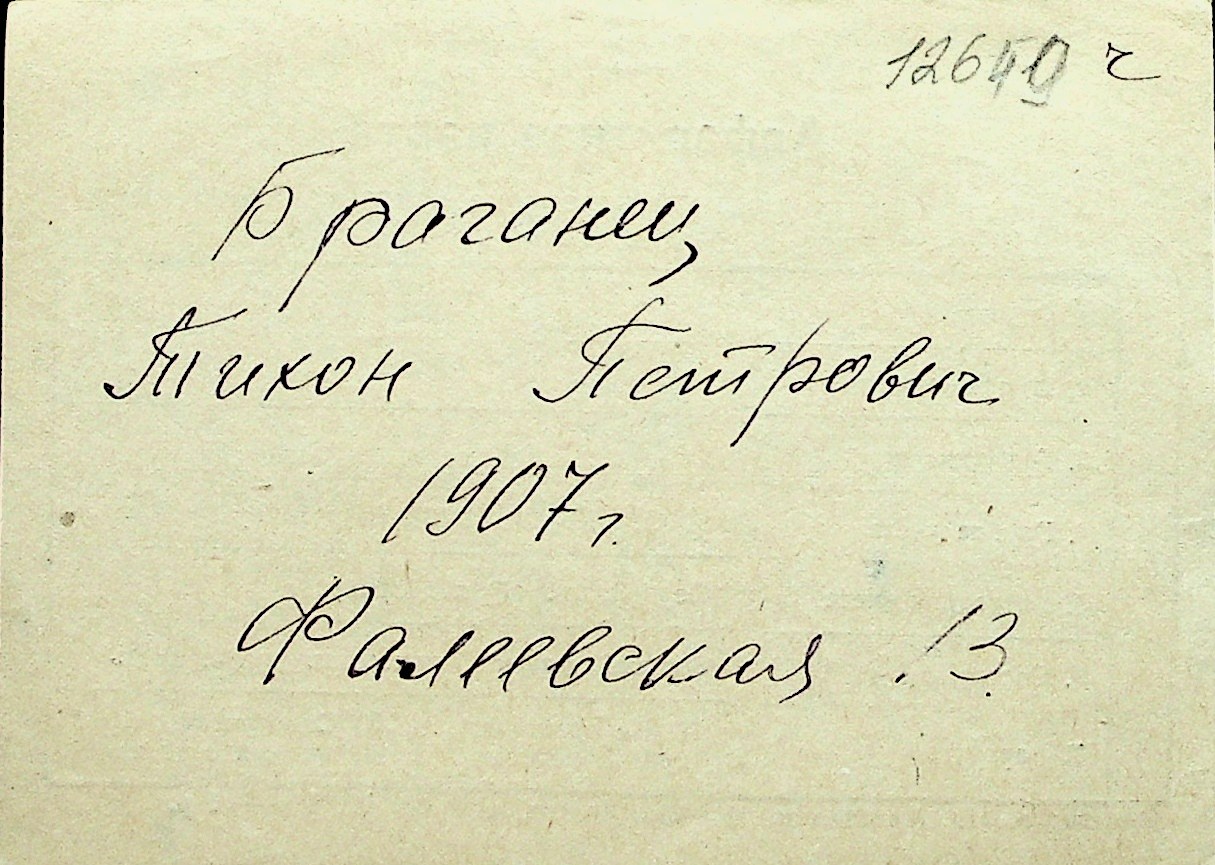 ч
Браганец
Тихон Петрович
1907 г.
Фалеевская 13